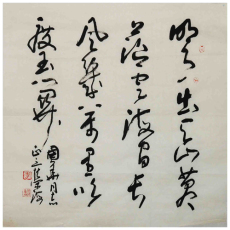 明月出天山蒼
茫雲海間長
風幾萬里吹
度玉門關
同志
正之